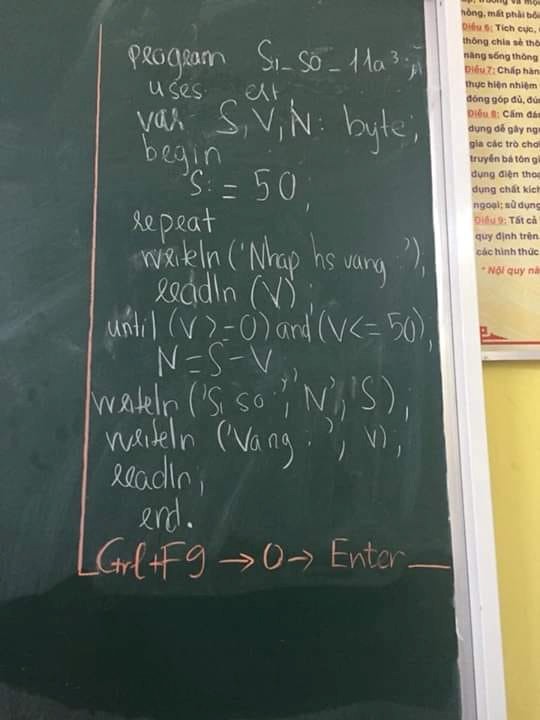 program Si_so_11a3;
uses crt
var S,V,N: byte;
begin
S:=50;
repeat
writeln('Nhap hs vang:');
readln(V);
until(V>=0)and(V<=50);
N=S-V
writeln('Si so:',N','S);
writeln('Vang:',V);
readln;
end.
Ctrl+F9→0→Enter
hỏng, mất phải bồi
Điều 6: Tích cực,
thông chia sẻ thô
năng sống thông
Điều 7: Chấp hàn
thực hiện nhiệm
đóng góp đủ, đún
Điều 8: Cấm đán
dụng dễ gây ngu
gia các trò chơi
truyền bá tôn gi
dụng điện thoạ
dụng chất kích
ngoại; sử dụng
Điều 9: Tất cả
quy định trên.
các hình thức
* Nội quy nà